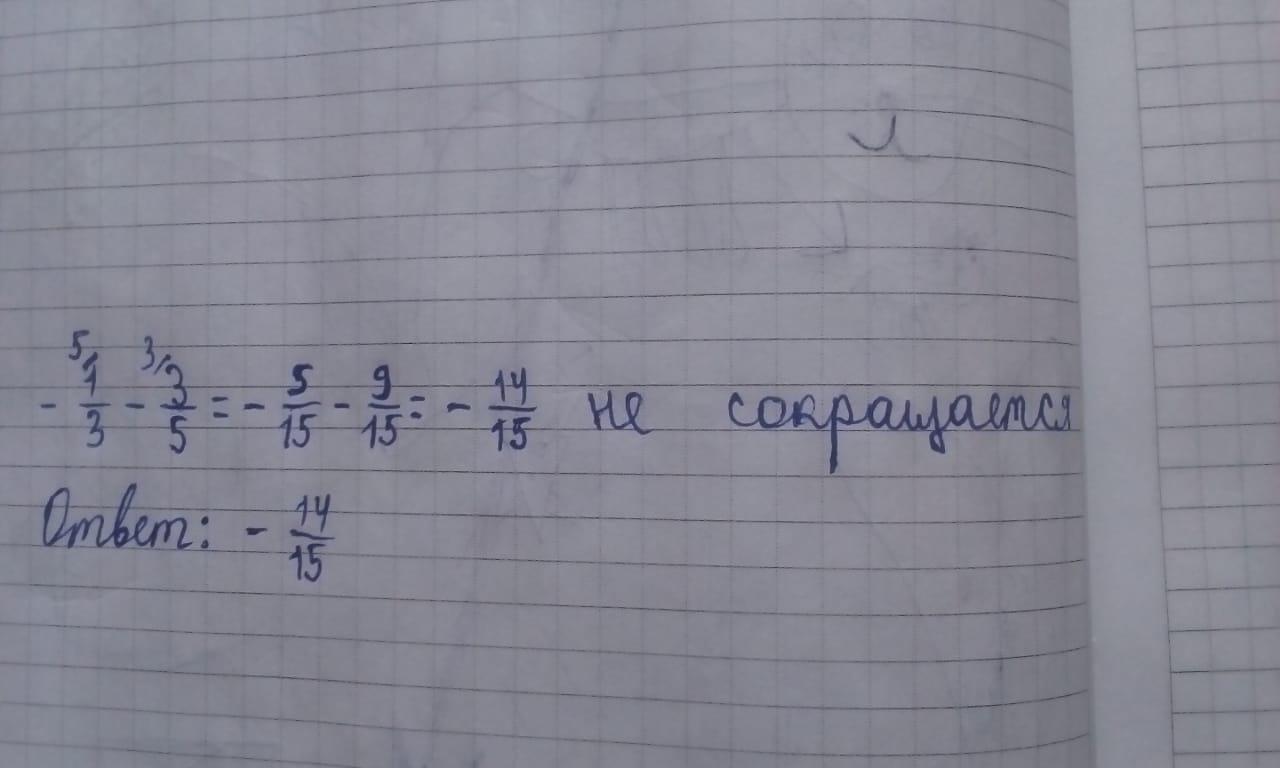 - 5/ 1/3 - 3/ 3/5 = - 5/15 - 9/15 = - 14/15 не сокращается
Ответ: - 14/15